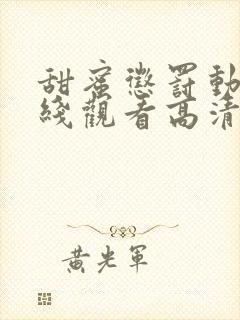 甜蜜懲罰動
綫觀看高清
黃光軍